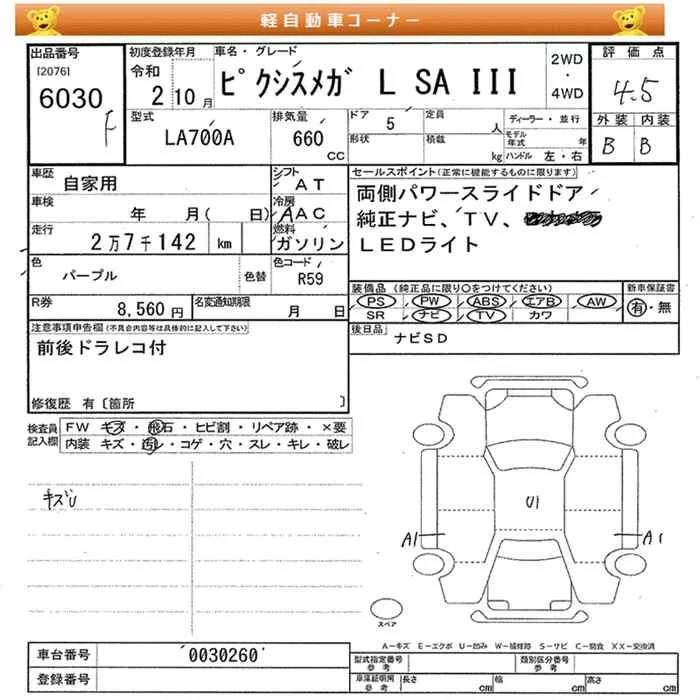 軽自動車コーナー
出品番号
[2076]
6030
F
初度登録年月
令和
2 10月
車名・グレード
ピクシスメガ L SA III
2WD
・
4WD
評価点
4.5
外装 内装
B B
型式
LA700A
排気量
660
CC
ドア 5
形状
定員 人
積載 kg
ディーラー・並行
モデル年式 年
ハンドル 左・右
車歴
自家用
シフト
AT
車検
年 月( 日)
冷房
AAC
走行
2万7千142 km
燃料
ガソリン
色
パープル
色替
色コード
R59
R券
8,560 円
名変通知期限
月 日
セールスポイント(正常に機能するものに限ります)
両側パワースライドドア
純正ナビ、TV、
LEDライト
装備品(純正品に限り○をつけてください)
PS PW ABS エアB AW
SR ナビ TV カワ
新車保証書
有・無
後日品
ナビSD
注意事項申告欄(不具合内容等は具体的に記入して下さい)
前後ドラレコ付
修復歴 有〔箇所 〕
検査員記入欄
FW キズ・飛石・ヒビ割・リペア跡・×要
内装 キズ・汚レ・コゲ・穴・スレ・キレ・破レ
キズU
U1
A1
A1
スペア
A－キズ E－エクボ U－凹み W－補修跡 S－サビ C－腐食 XX－交換済
車台番号
0030260
登録番号
型式指定番号
参考
類別区分番号
参考
車庫証明用
参考
長さ cm
幅 cm
高さ cm